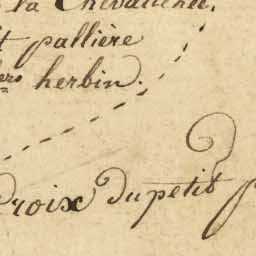 la Chevauchée.
t pallière
ers herbin.
Croix Du petit p